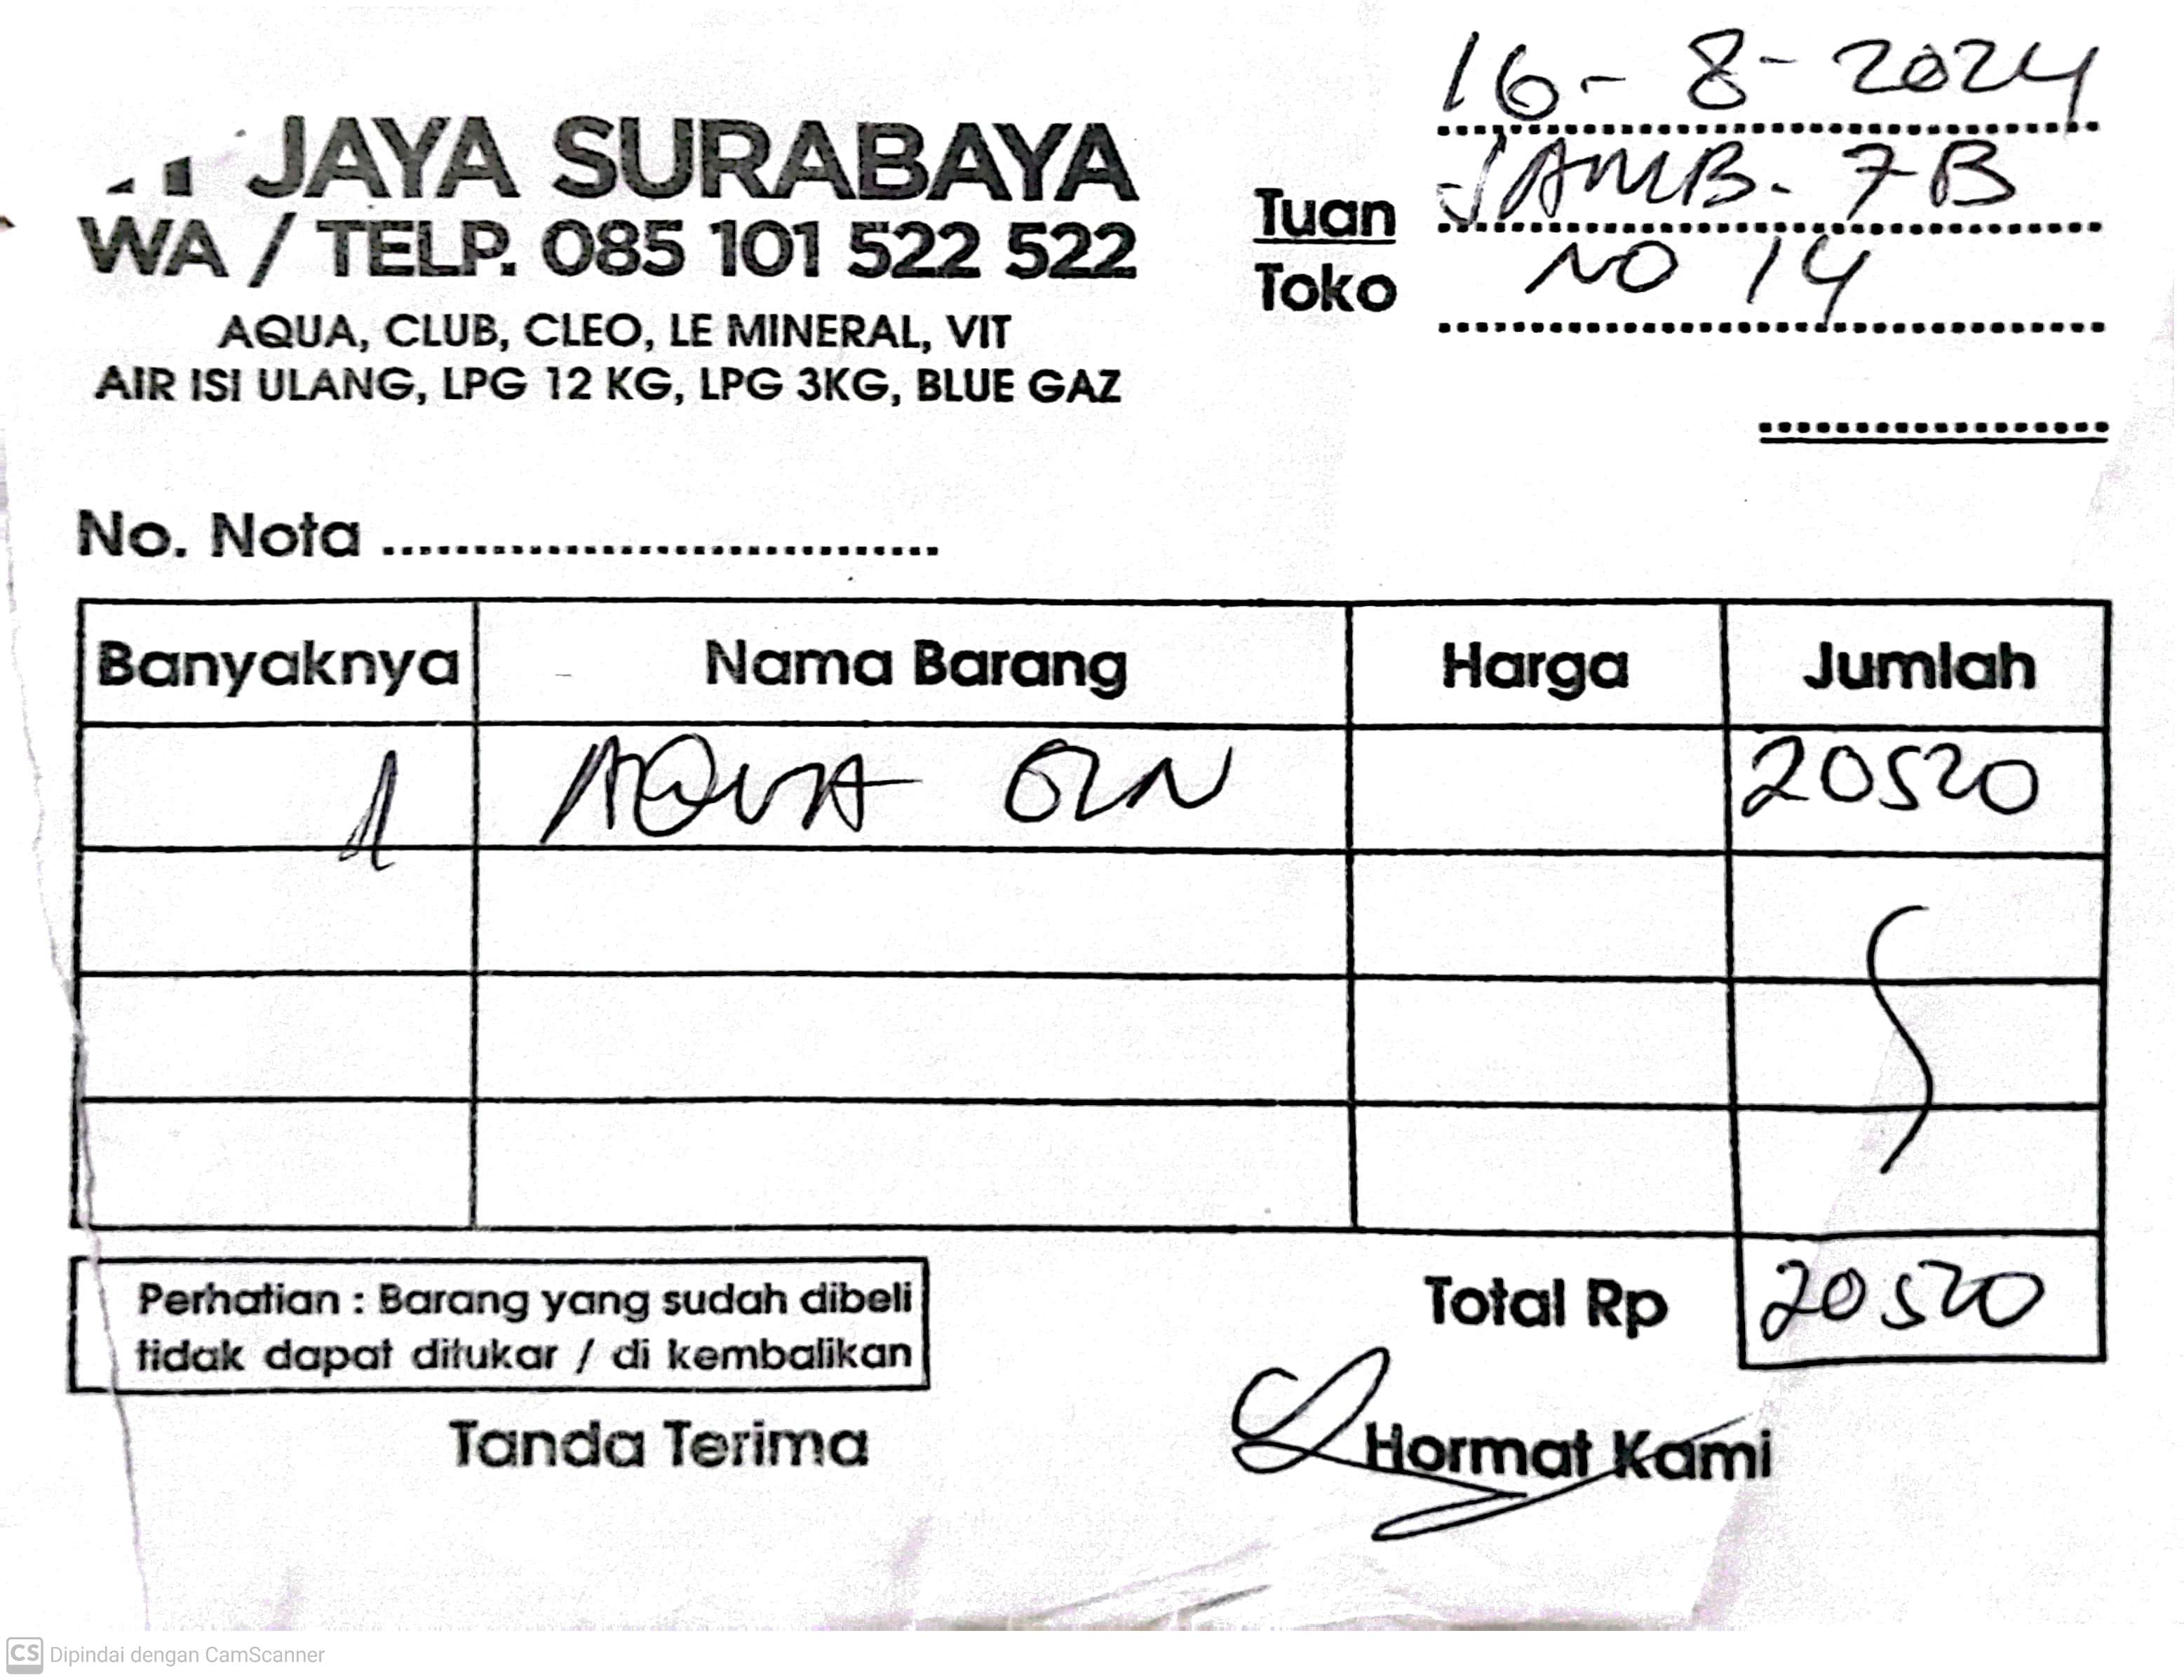 16-8-2024
JAYA SURABAYA
WA / TELP. 085 101 522 522
AQUA, CLUB, CLEO, LE MINERAL, VIT
AIR ISI ULANG, LPG 12 KG, LPG 3KG, BLUE GAZ
Tuan JAMB. 7B
Toko NO 14
No. Nota
Banyaknya Nama Barang Harga Jumlah
1 AQUA GLN 20520
Total Rp 20520
Perhatian : Barang yang sudah dibeli
tidak dapat ditukar / di kembalikan
Tanda Terima Hormat Kami
CS Dipindai dengan CamScanner